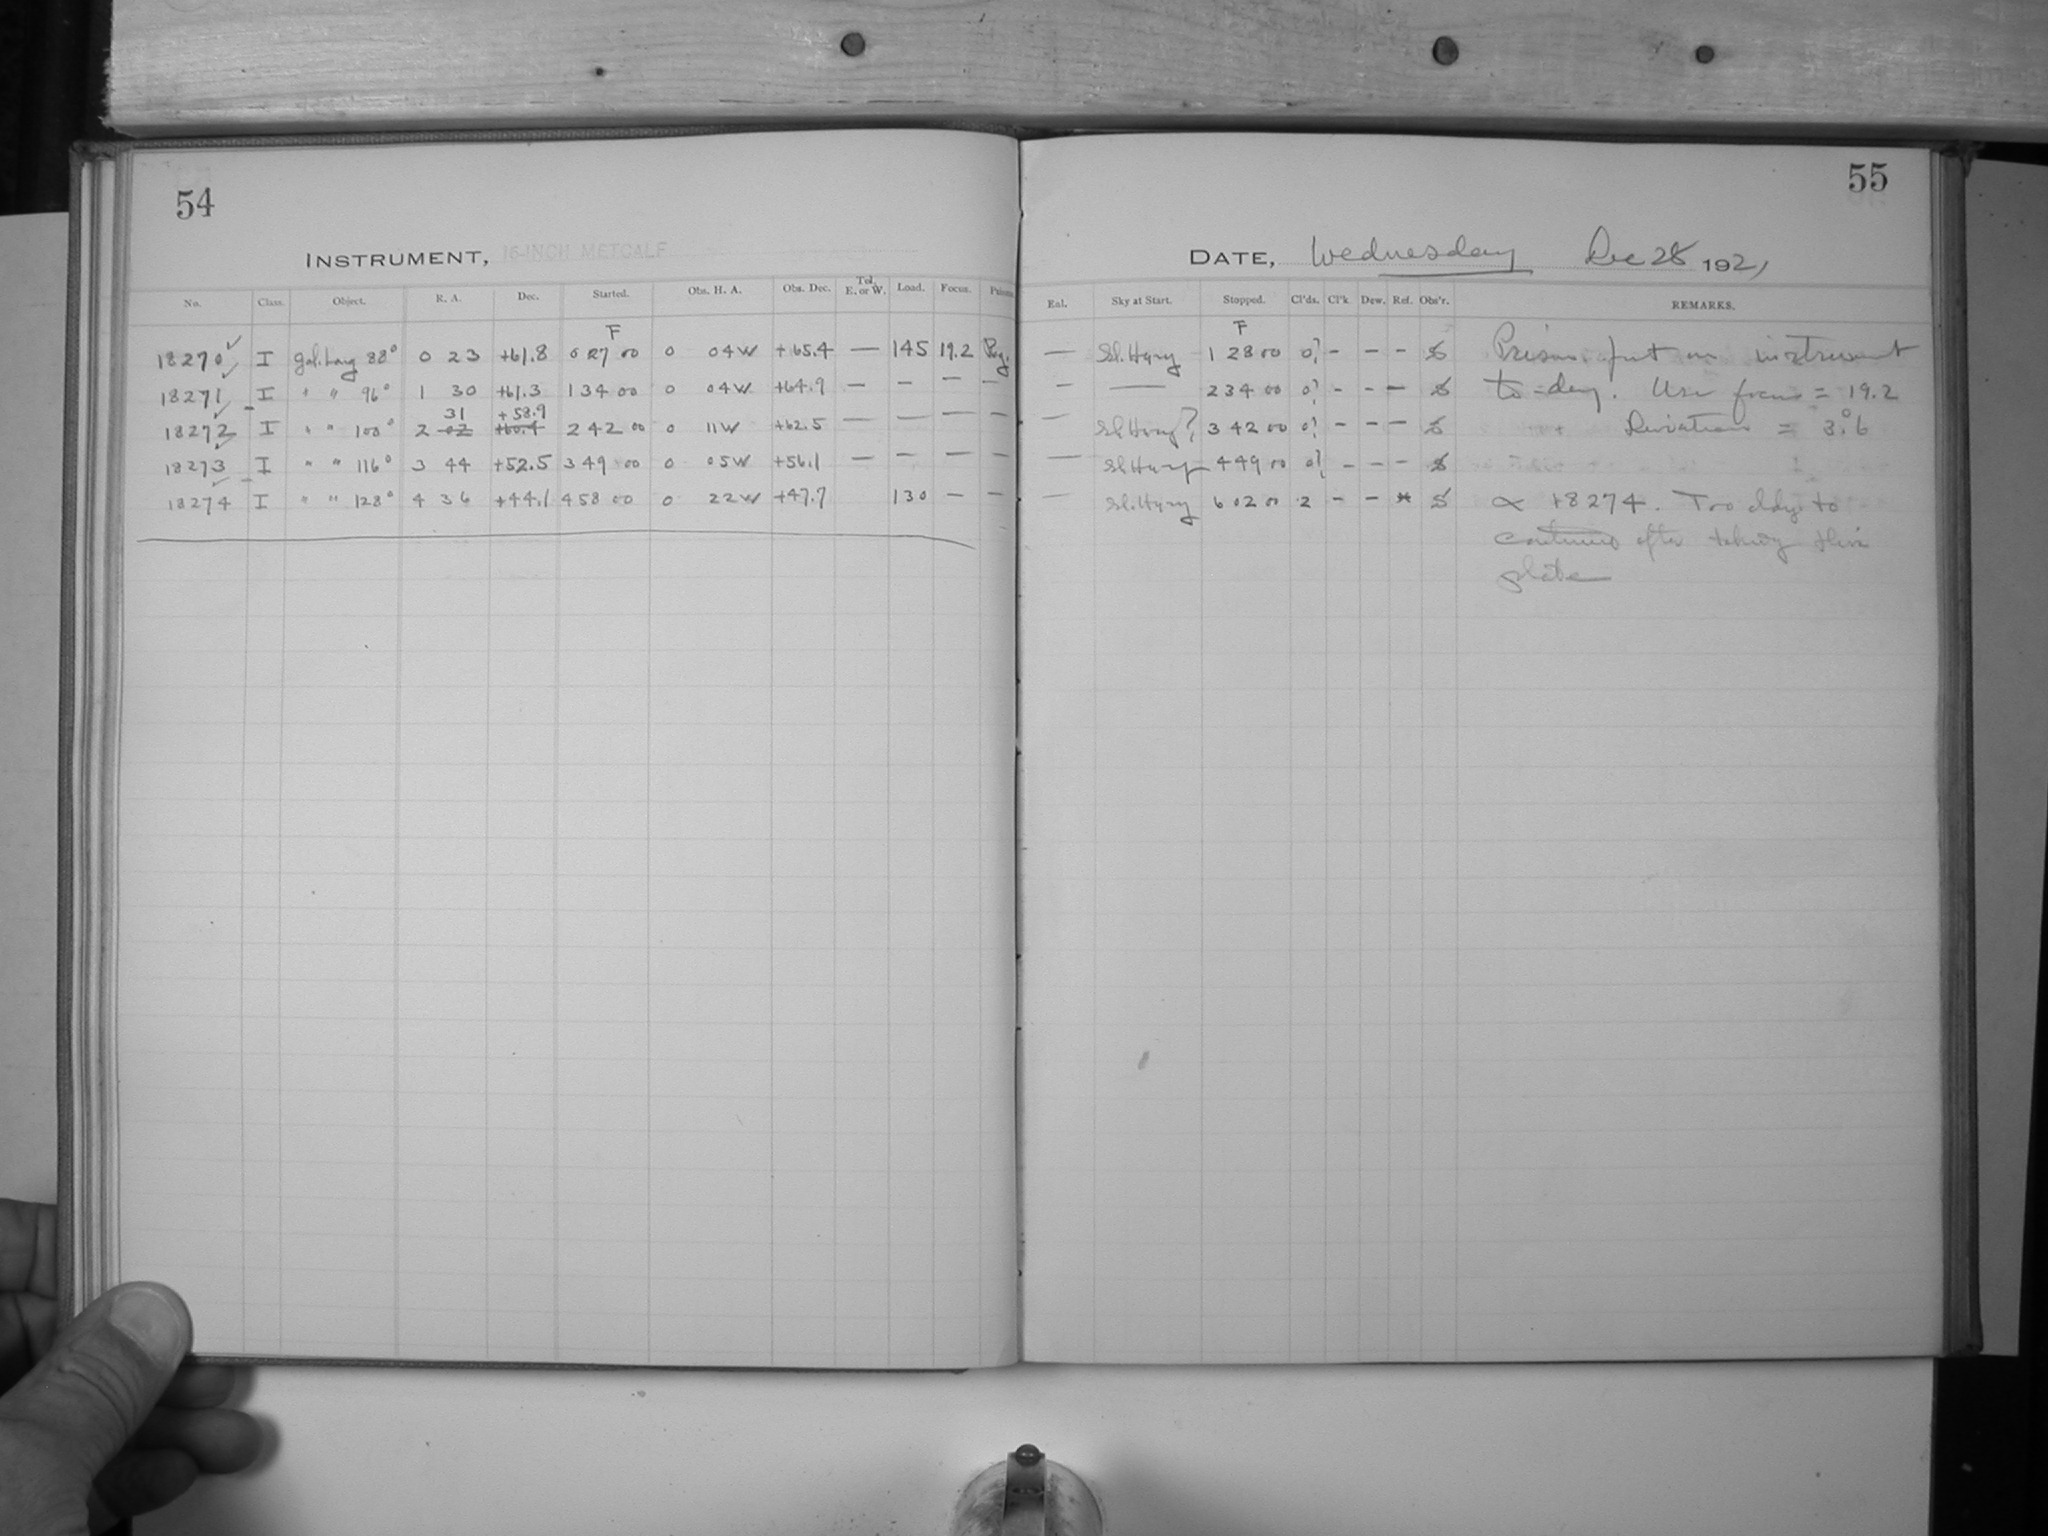 54
55
INSTRUMENT, 16-INCH METCALF
DATE, Wednesday Dec 28 1921
No. Class. Object. R. A. Dec. Started. Obs. H. A. Obs. Dec. Tel. E. or W. Load. Focus. Prism.
Enl. Sky at Start. Stopped. Cl'ds. Cl'k. Dew. Ref. Obs'r. REMARKS.
F
F
18270 ✓ I Gal. Long 88° 0 23 +61.8 0 27 00 0 04W +65.4 — 145 19.2
— Sl. Hazy 1 28 00 0? - - - Prism put on instrument
18271 ✓ I " " 96° 1 30 +61.3 1 34 00 0 04W +64.9 — - — —
— — 2 34 00 0? - - - to-day. Use focus = 19.2
31 +58.9
18272 ✓ I " " 108° 2 02 +60.4 2 42 00 0 11W +62.5 — — — —
— Sl Hazy? 3 42 00 0? - - - Deviation = 3°.6
18273 ✓ I " " 116° 3 44 +52.5 3 49 00 0 05W +56.1 — - — —
— Sl Hazy 4 49 00 0? - - -
18274 ✓ I " " 128° 4 36 +44.1 4 58 00 0 22W +47.7 130 — —
— Sl. Hazy 6 02 00 2 - - * ∝ 18274. Too cldy to
continue after taking this
plate